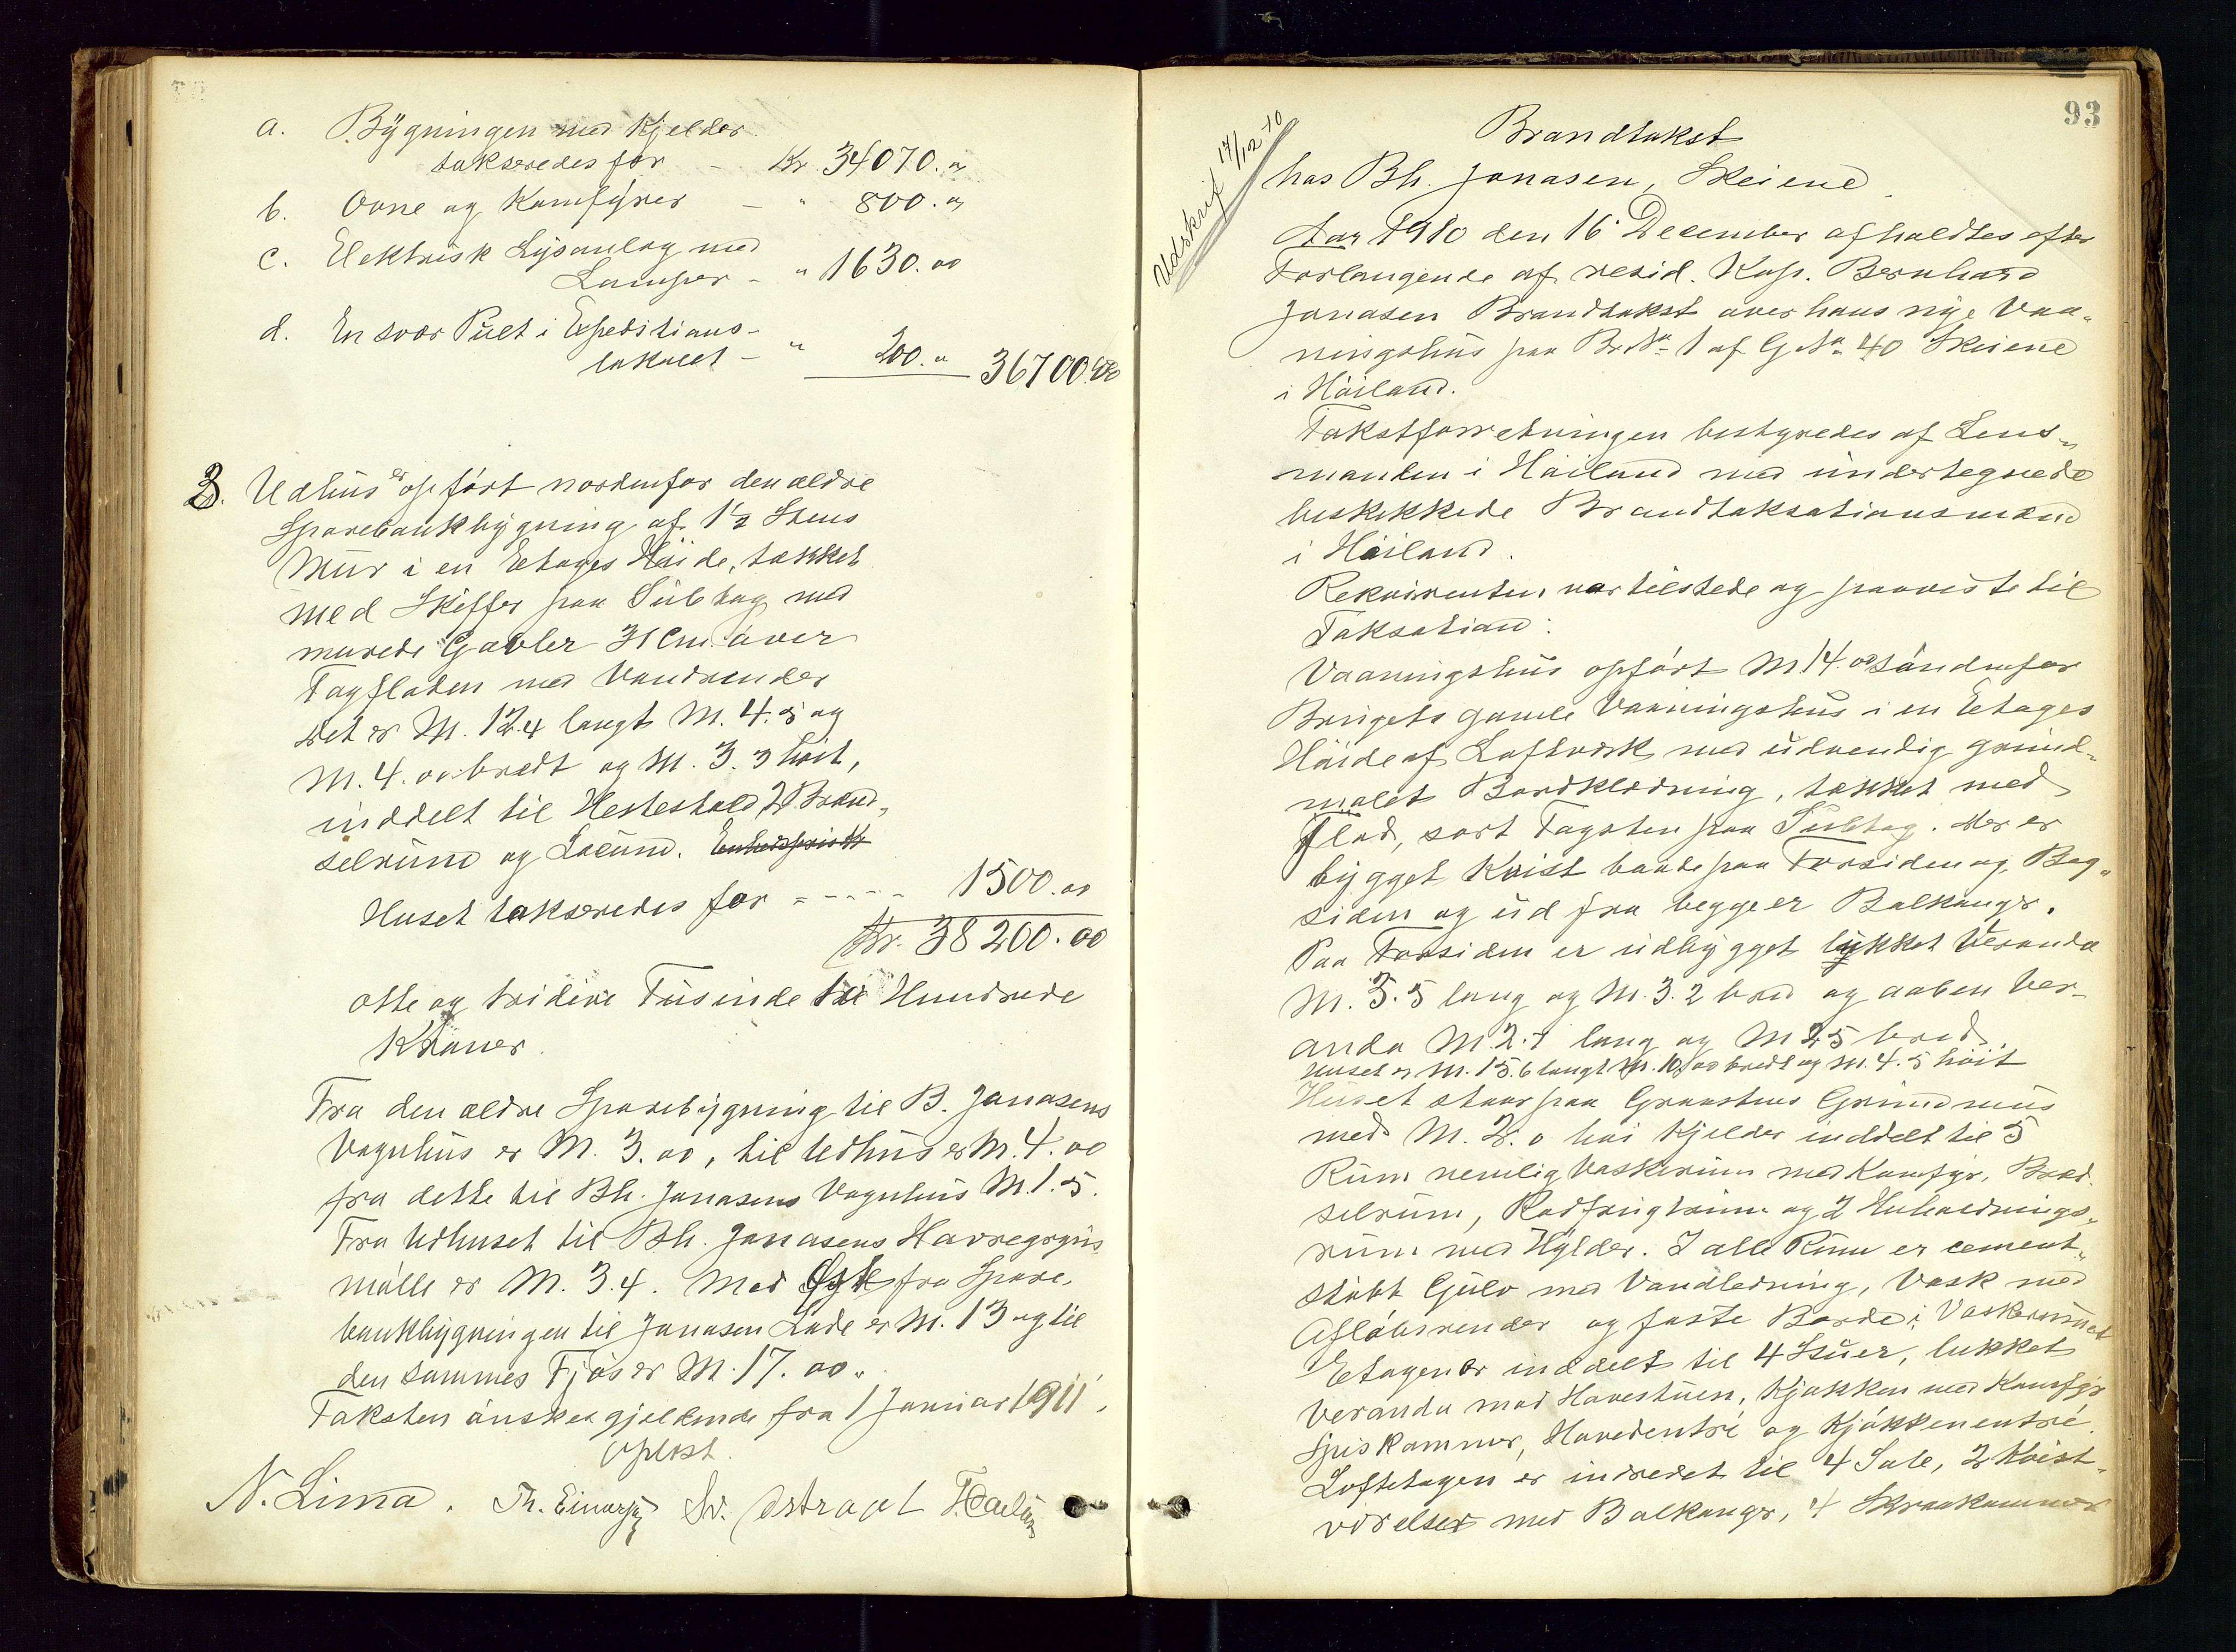 a. Bygningen med Kjelder
takseredes for - Kr. 34070. "
b. Ovne og Komfyrer - " 800. "
c. Elektrisk Lysanlæg med
Lamper - " 1630. 00
d. En svær Pult i Expeditions-
lokalet - " 200. " 36700.00
3. Udhus er opført nordenfor den ældre
Sparebankbygning af 1½ Stens
Mur i en Etages Høide, tækket
med Skiffer paa Sultag med
murede Gavler 31 Cm. over
Tagfladen med Vandrender
Det er M. 12.4 langt M. 4.5 og
M. 4.00 bredt og M. 3.3 høit,
inddelt til Hestestald, 2 Brænd-
selrum og Locum.
Huset takseredes for - - - - - 1500.00
Kr. 38200.00
otte og tredive Tusinde to Hundrede
Kroner
Fra den ældre Sparebygning til B. Jonasens
Vognhus er M. 3.00, til Udhus er M. 4.00
fra dette til Bh. Jonasens Vognhus M. 1.5.
Fra Udhuset til Bh. Jonasens Havregryns
mølle er M. 3.4. Mod Øst fra Spare-
bankbygningen til Jonasen Lade er M. 13 og til
den sammes Fjøs er M. 17.00.
Taksten ønskes gjeldende fra 1 Januar 1911.
Oplæst.
N. Lima. Th. Einarsen Sv. Østraat
93
Udskrift 17/12-10
Brandtakst
hos Bh. Jonasen, Skeiene
Aar 1910 den 16 December afholdtes efter
Forlangende af resid. Kap. Bernhard
Jonasen Brandtakst over hans nye Vaa-
ningshus paa Br. No 1 af G. No 40 Skeiene
i Høiland.
Takstforretningen bestyredes af Lens-
manden i Høiland med undertegnede
beskikkede Brandtaksationsmænd
i Høiland.
Rekvirenten var tilstede og paaviste til
Taksation:
Vaaningshus opført M. 14.00 søndenfor
Brugets gamle Vaaningshus i en Etages
Høide af Loftværk med udvendig grund-
malet Bordklædning, tækket med
flad, sort Tagsten paa Sultag. Der er
bygget Kvist baade paa Forsiden og Bag-
siden og ud fra begge er Balkonger.
Paa Forsiden er udbygget lukket Veranda
M. 3.5 lang og M. 3.2 bred og aaben Ver-
anda M. 2.7 lang og M 2.5 bred.
Huset er M. 15.6 langt M. 10.00 bredt og M. 4.5 høit
Huset staar paa Graastens Grundmur
med M. 2.0 høi Kjelder inddelt til 5
Rum nemlig Vaskerum med Komfyr, Bræd-
selrum, Rodfrugtrum og 2 Huholdnings-
rum med Hylder. I alle Rum er cement-
støbt Gulv med Vandledning, Vask med
Afløbsrender og faste Borde i Vaskerummet
Etagen er inddelt til 4 Stuer, lukket
Veranda mod Havestuen, Kjøkken med Komfyr
Spiskammer, Hovedentré og Kjøkkenentré.
Loftetagen er indredet til 4 Sale, 2 Kvist-
værelser med Balkonger, 4 Skraakammer